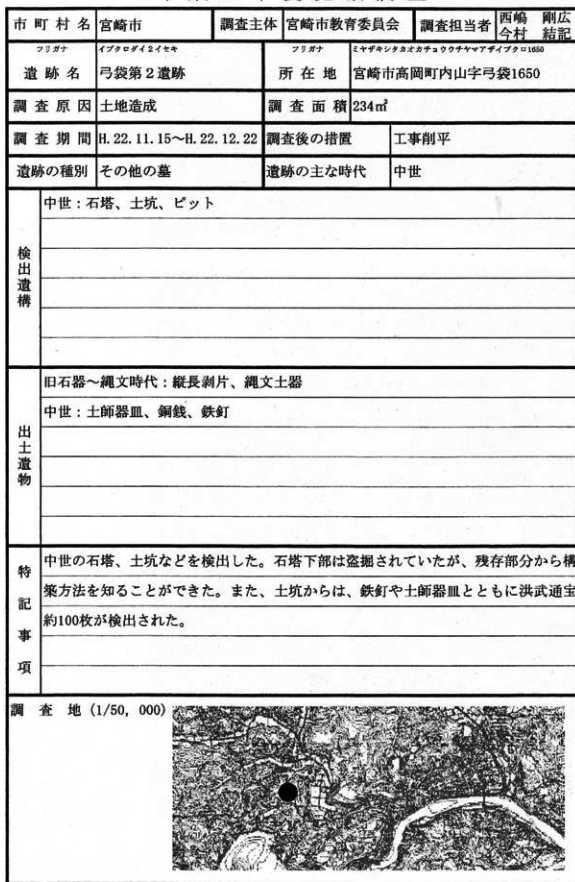 市町村名 宮崎市 調査主体 宮崎市教育委員会 調査担当者 西嶋 剛広
今村 結記
フリガナ イブクロダイ2イセキ フリガナ ミヤザキシタカオカチョウウチヤマアザイブクロ1650
遺跡名 弓袋第2遺跡 所在地 宮崎市高岡町内山字弓袋1650
調査原因 土地造成 調査面積 234㎡
調査期間 H.22.11.15～H.22.12.22 調査後の措置 工事削平
遺跡の種別 その他の墓 遺跡の主な時代 中世
検出遺構
中世：石塔、土坑、ピット
出土遺物
旧石器～縄文時代：縦長剥片、縄文土器
中世：土師器皿、銅銭、鉄釘
特記事項
中世の石塔、土坑などを検出した。石塔下部は盗掘されていたが、残存部分から構
築方法を知ることができた。また、土坑からは、鉄釘や土師器皿とともに洪武通宝
約100枚が検出された。
調査地(1/50,000)